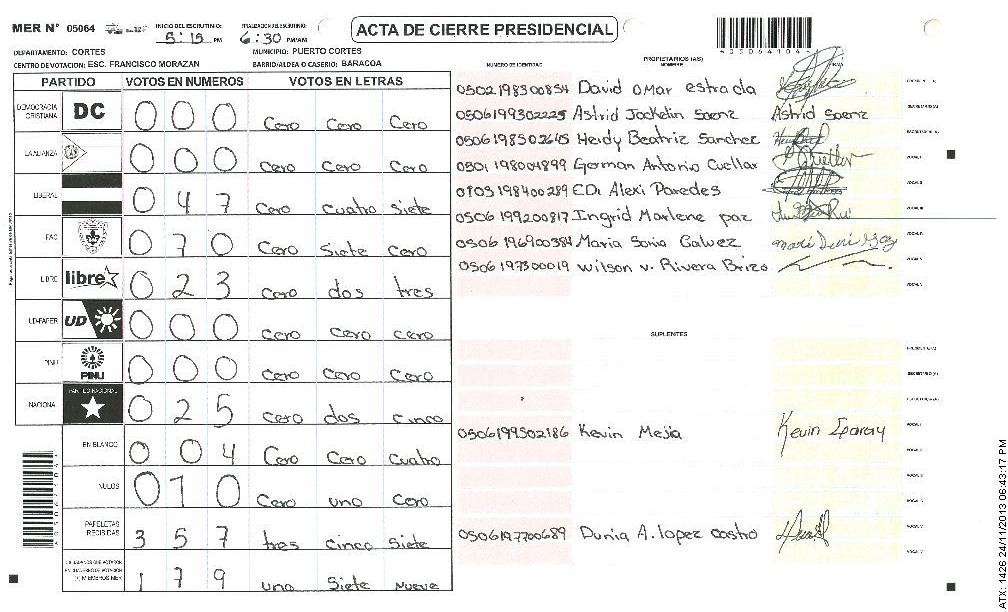 MER N° 05064 INICIO DEL ESCRUTINIO: 5:15 PM FINALIZACION DEL ESCRUTINIO: 6:30 PM/AM ACTA DE CIERRE PRESIDENCIAL
DEPARTAMENTO: CORTES MUNICIPIO: PUERTO CORTES
CENTRO DE VOTACION: ESC. FRANCISCO MORAZAN BARRIO/ALDEA O CASERIO: BARACOA
PARTIDO VOTOS EN NUMEROS VOTOS EN LETRAS
DEMOCRACIA CRISTIANA DC 0 0 0 Cero Cero Cero
LA ALIANZA 0 0 0 Cero Cero Cero
LIBERAL 0 4 7 Cero Cuatro Siete
FAC 0 7 0 Cero Siete Cero
LIBRE libre 0 2 3 Cero dos tres
UD-FAPER UD 0 0 0 Cero Cero Cero
PINU PINU 0 0 0 Cero Cero Cero
NACIONAL PARTIDO NACIONAL 0 2 5 Cero dos Cinco
EN BLANCO 0 0 4 Cero Cero Cuatro
NULOS 0 1 0 Cero uno Cero
PAPELETAS RECIBIDAS 3 5 7 tres Cinco Siete
CIUDADANOS QUE VOTARON EN CUADERNO DE VOTACION (+) MIEMBROS MER 1 7 9 uno Siete nueve
NUMERO DE IDENTIDAD PROPIETARIOS (AS) NOMBRE FIRMA
0502198300854 David Omar estrada
0506199302225 Astrid Jackelin Saenz Astrid Saenz
0506198502665 Heidy Beatriz Sanchez
0501198004899 German Antonio Cuellar
CDi Alexi Paredes
0506199200817 Ingrid Marlene paz
0506196900384 Maria Sonia Galvez
0506197300019 Wilson v. Rivera Brizo
SUPLENTES
0506199502186 Kevin Mejia Kevin
0506197700689 Dunia A. lopez castro
ATX: 1426 24/11/2013 06:43:17 PM